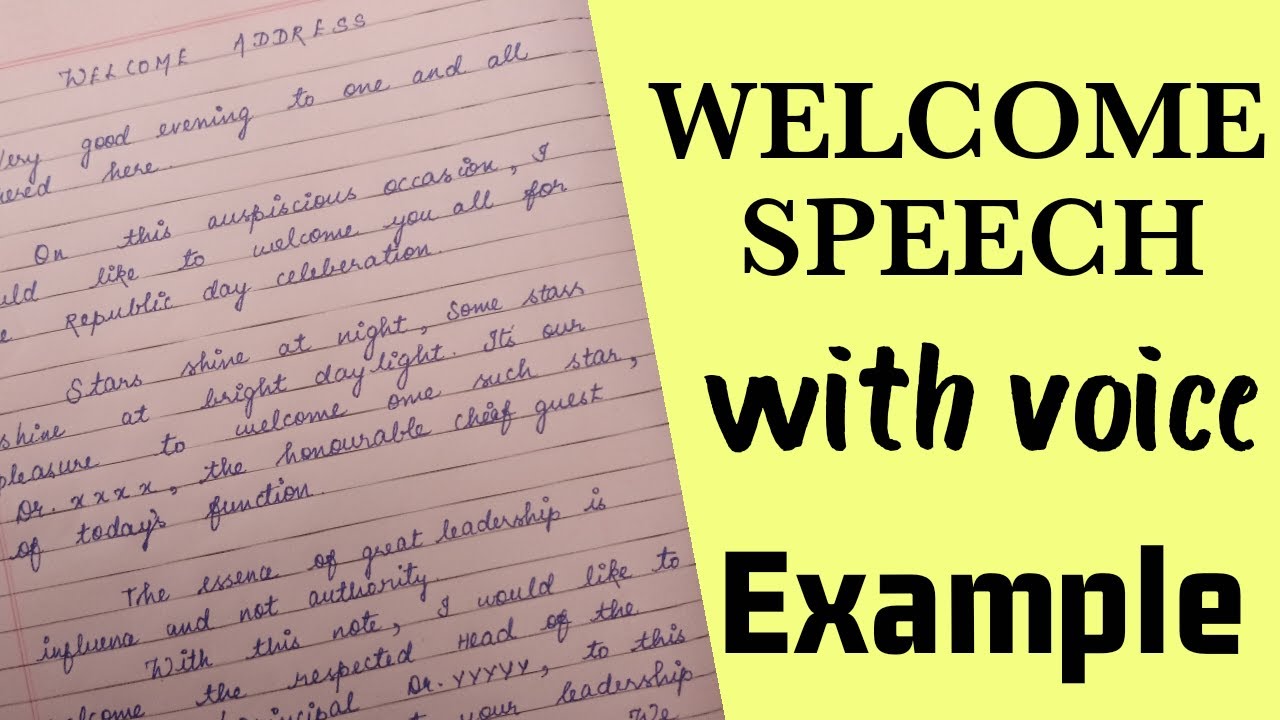 WELCOME ADDRESS
Very good evening to one and all
ered here.
On this auspiscious occasion, I
uld like to welcome you all for
e Republic day celeberation.
Stars shine at night, Some stars
shine at bright daylight. It's our
pleasure to welcome one such star,
Dr. xxxx, the honourable cheif guest
of today's function.
The essence of great leadership is
influence and not authority.
With this note, I would like to
elcome the respected Head of the
rincipal Dr. YYYYY, to this
your leadership
We
WELCOME
SPEECH
with voice
Example